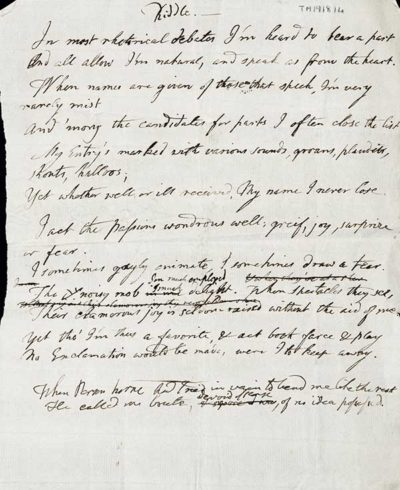 Riddle.
TM1918 14
In most rhetorical debates I'm heard to bear a part
And all allow I'm natural, and speak as from the heart.
When names are given of those that speek, I'm very
rarely mist
And 'mong the candidates for parts I often close the list
My Entry's marked with various sounds, groans, plaudits,
shouts, halloos;
Yet whether well or ill received, my name I never lose
I act the Passions wondrous well; grief, joy, surprize
or fear.
I sometimes gayly animate, I sometimes draw a tear.
The noisy mob I'm most employed delight. When spectacles they see,
Their clamorous joy is seldom raised without the aid of me
Yet tho' I'm thus a favorite, & act both farce & play
No Exclamation would be made, were I to keep away.
When horne did tried in vain to bend me like the rest
He called me brute, devoid of sense, of no idea possess'd.